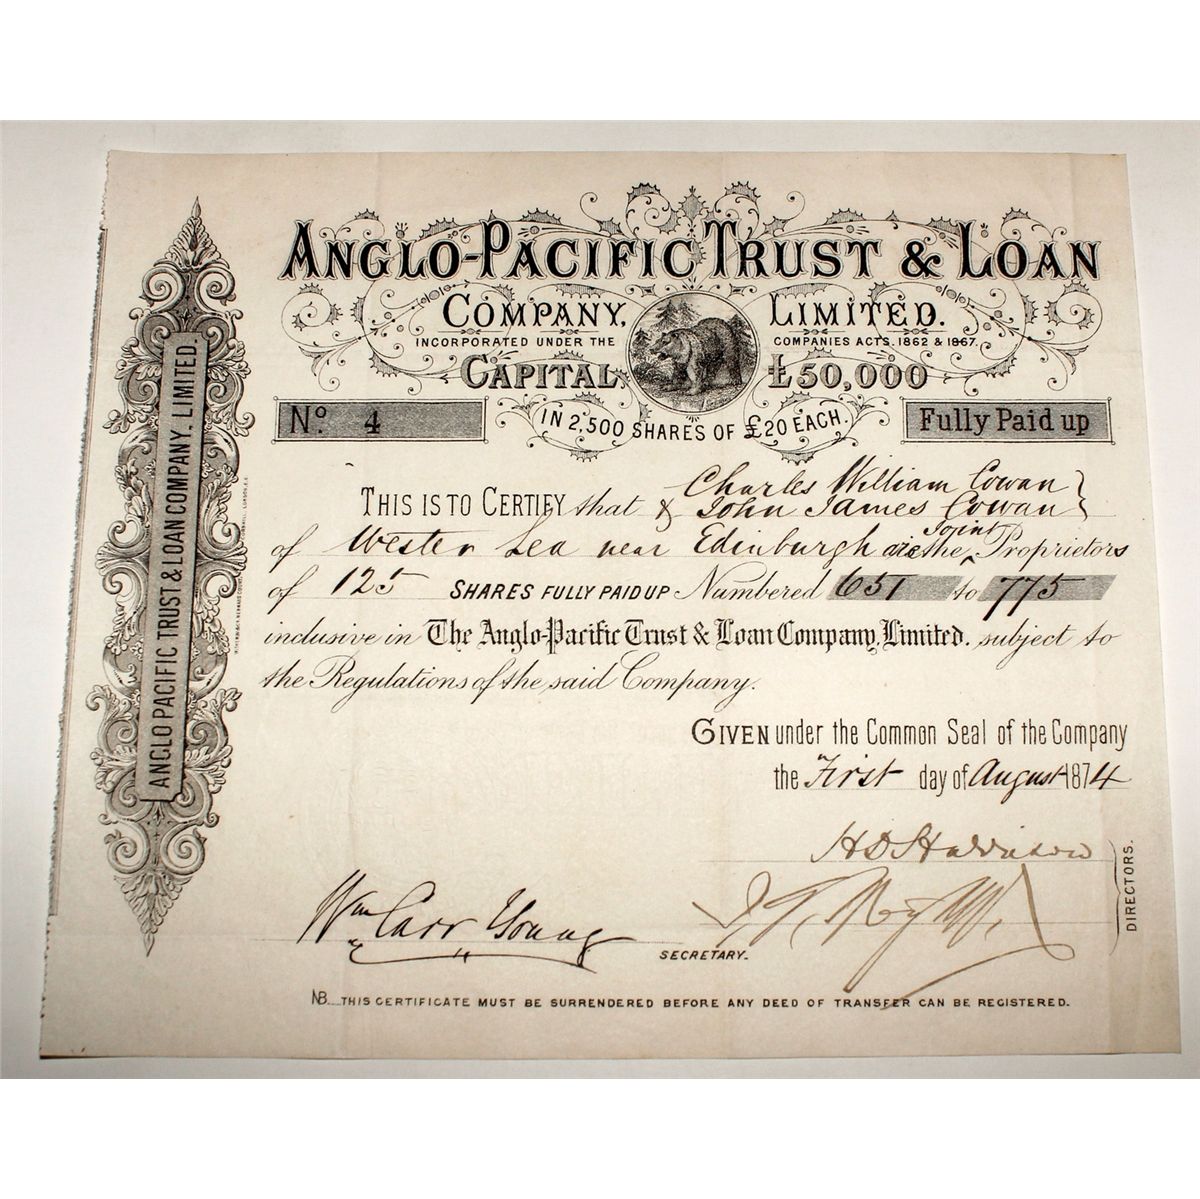 ANGLO-PACIFIC TRUST & LOAN
COMPANY, LIMITED.
INCORPORATED UNDER THE COMPANIES ACTS, 1862 & 1867.
CAPITAL £50,000
IN 2,500 SHARES OF £20 EACH.
No. 4
Fully Paid up
THIS IS TO CERTIFY that Charles William Cowan
& John James Cowan
of Wester Lea near Edinburgh are the Joint Proprietors
of 125 SHARES FULLY PAID UP Numbered 651 to 775
inclusive in The Anglo-Pacific Trust & Loan Company, Limited. subject to
the Regulations of the said Company.
GIVEN under the Common Seal of the Company
the First day of August 1874
Wm Carr Young
SECRETARY.
DIRECTORS.
NB. THIS CERTIFICATE MUST BE SURRENDERED BEFORE ANY DEED OF TRANSFER CAN BE REGISTERED.
ANGLO PACIFIC TRUST & LOAN COMPANY, LIMITED.